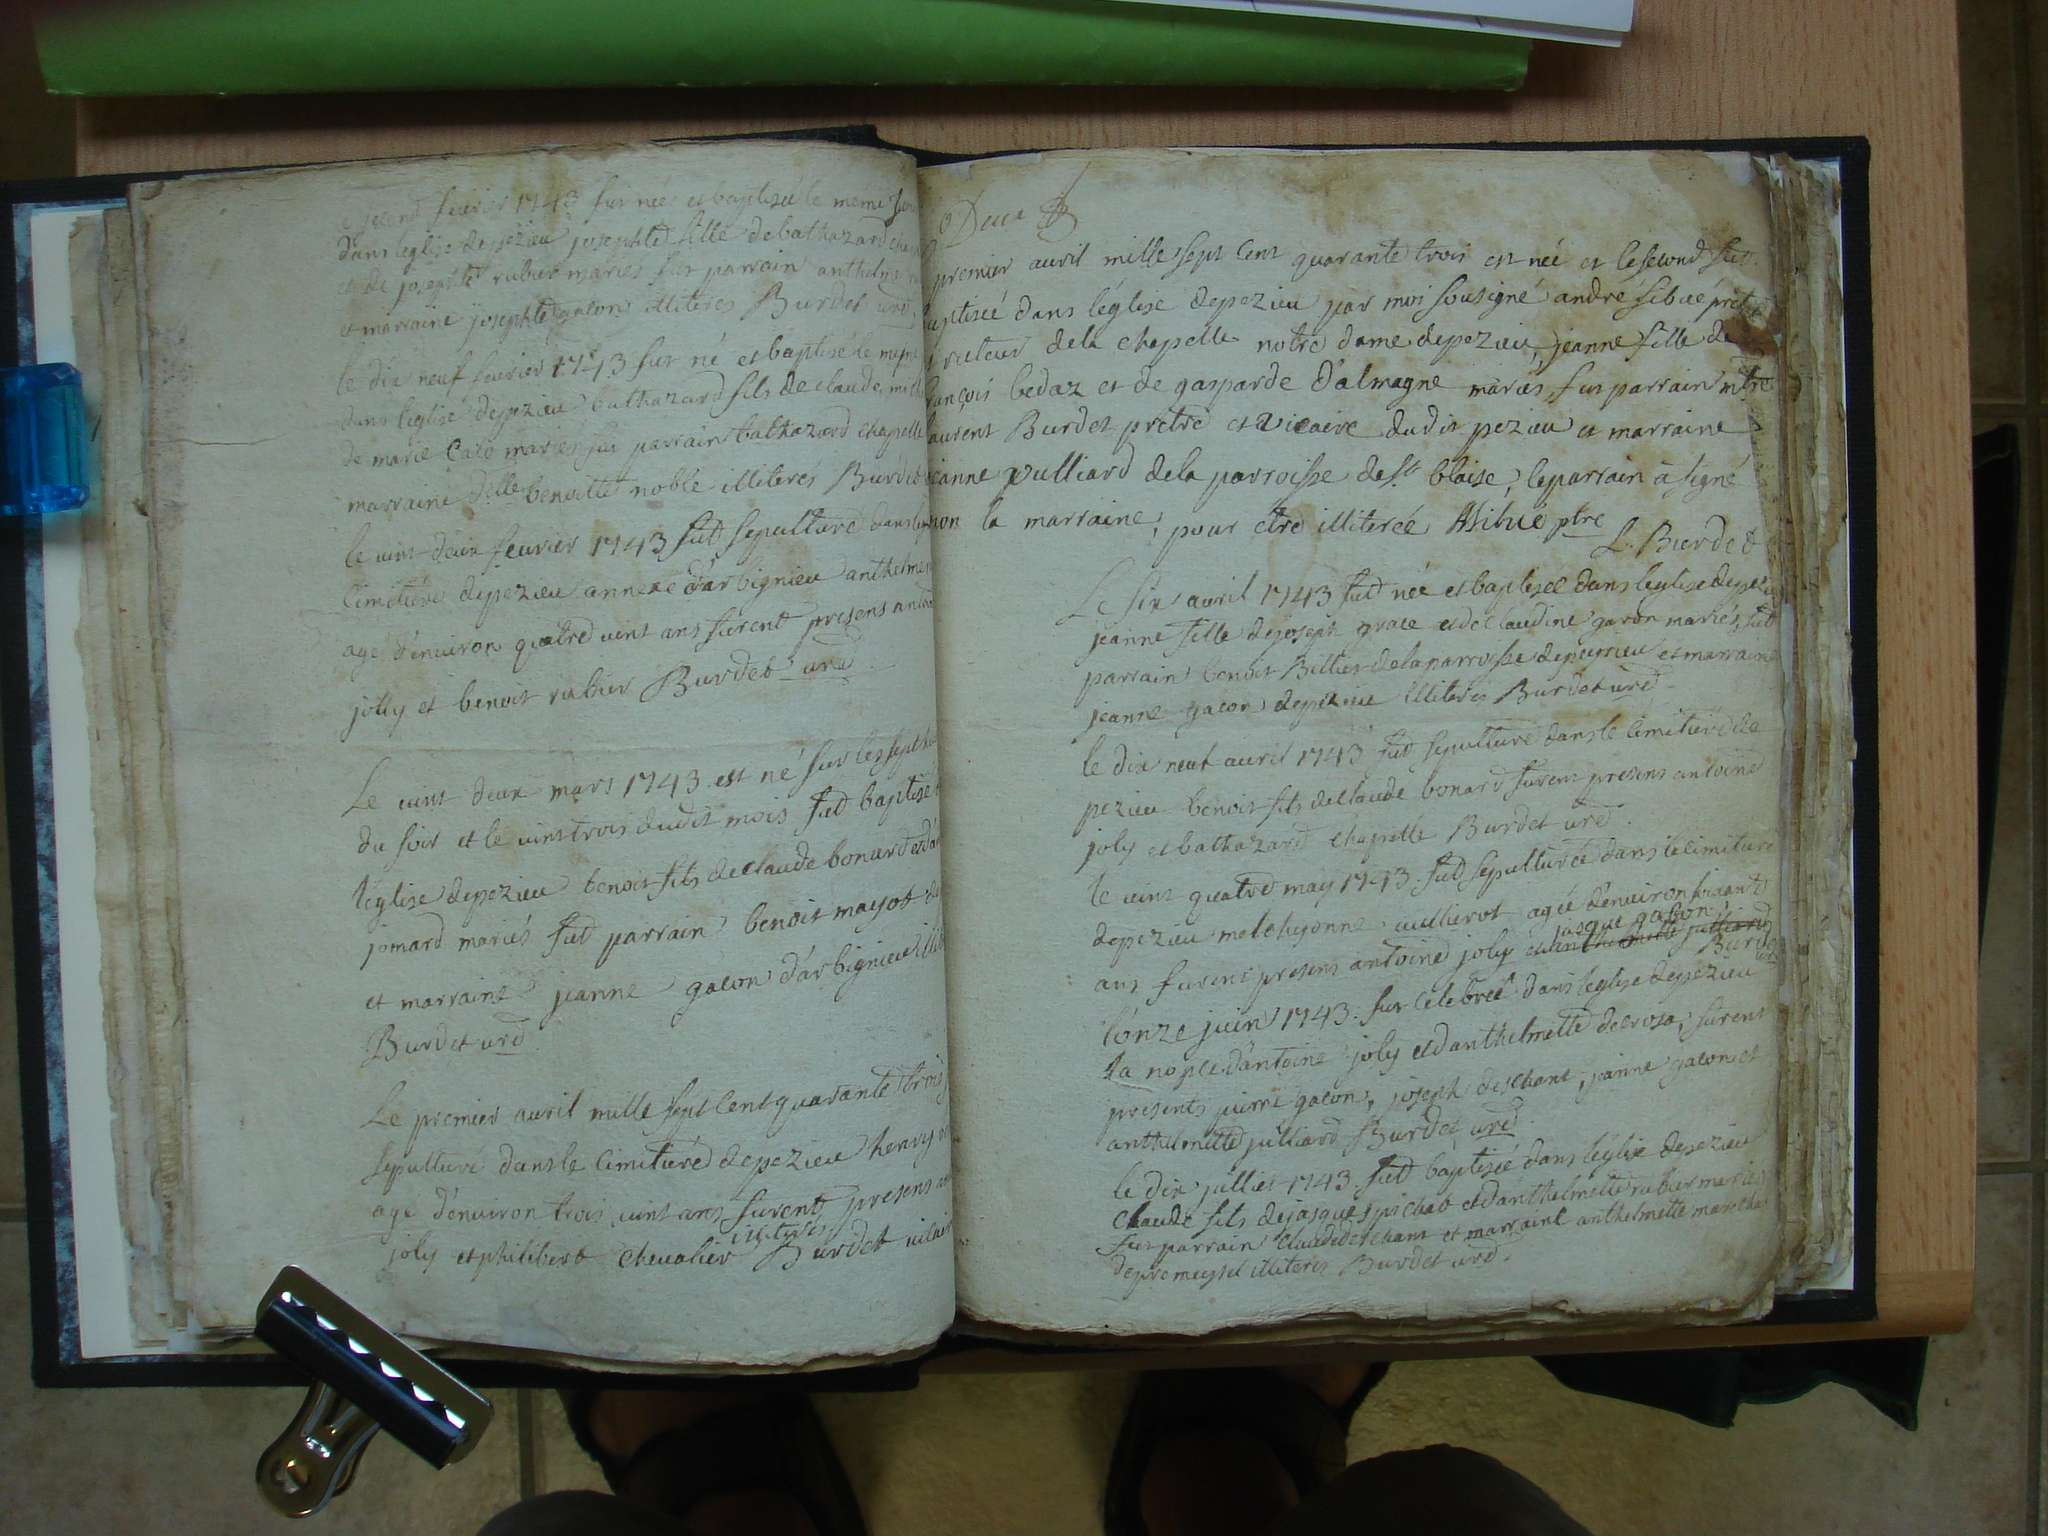 second fevrier 1743 fut née et baptisé le meme jour
dans leglise de pezieu josephte fille de balthazard
et de josephte rubier mariés fut parrain anthelme
et marraine josephte galon illiteres Burdet vre
le dix neuf fevrier 1743 fut né et baptisé le meme
dans leglise depezieu balthazard fils de claude
de marie Caro mariés fut parrain balthazard chapelle
marraine dlle benoitte noble illiterés Burdet
le vint deux fevrier 1743 fut sepulturé dans le
cimitiere depezieu annexe d'arbignieu anthelme
agé d'environ quatre vint ans furent presens
jolly et benoit rubier Burdet vre
Le vint deux mars 1743 est né sur les sept
du soir et le vint trois dudit mois fut baptisé
l'eglise depezieu benoit fils de claude bonard
jomard mariés fut parrain benoit mayot
et marraine jeanne galon d'arbignieu
Burdet vre
Le premier avril mille sept cent quarante trois
sepulturé dans le cimitiere depezieu henry
agé d'environ trois vint ans furent presens
joly et philibert chevalier illiterés Burdet vicaire
Deux
premier avril mille sept cent quarante trois est née et le second fut
baptisée dans l'église depezieu par moi sousigné andré sibué pretre
recteur dela chapelle notre dame depezieu, jeanne fille de
françois bedaz et de gasparde d'almagne mariés, fut parrain mtre
laurent Burdet pretre et vicaire dudit pezieu et marraine
jeanne vulliard dela parroisse de st blaise, le parrain à signé
non la marraine, pour être illiterée ASibué ptre
L. Burdet
Le six avril 1743 fut née et baptisée dans leglise depezieu
jeanne fille de joseph grace et de claudine garon mariés, fut
parrain benoit Billier de la parroisse depeyrieu et marraine
jeanne galon depezieu illiterés Burdet vre
le dix neuf avril 1743 fut sepulturé dans le cimitiere de
pezieu benoit fils de claude bonard furent presens antoine
joly et balthazard chapelle Burdet vre
le vint quatre may 1743 fut sepulturée dans le cimitiere
depezieu melchyonne vullierot agée d'environ soixante
ans furent presens antoine joly et jasque galon anthelmette julliard
Burdet vre
l'onze juin 1743 fut celebrée dans leglise depezieu
la nopce d'antoine joly et d'anthelmette decrosa, furent
presents pierre galon, joseph deschant, jeanne galon et
anthelmette julliard Burdet vre
le dix jullier 1743 fut baptisé dans leglise depezieu
claude fils de jasque pichat et d'anthelmette rubier mariés
fut parrain claude deschant et marraine anthelmette
depremeysel illiteres Burdet vre